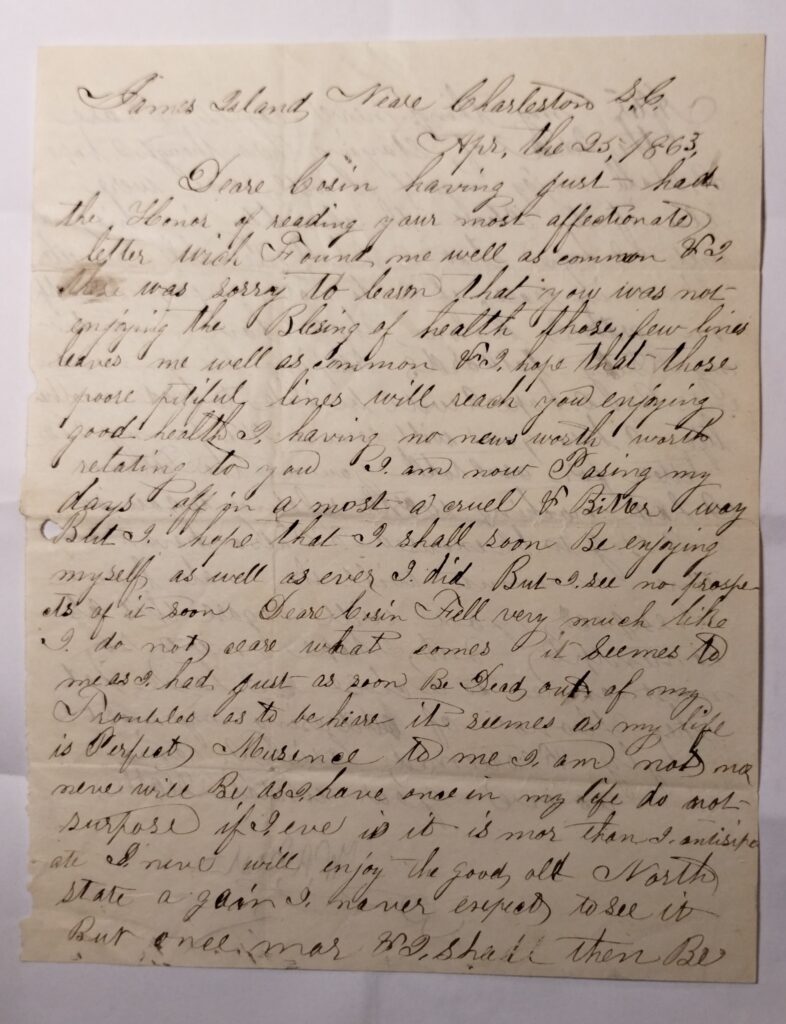 James Island, Neare Charleston S.C.
Apr, the 25, 1863,
Deare Cosin having just had
the Honor of reading your most affectionate
letter wich Found me well as common & I.
was sorry to learn that you was not
enjoying the Blesing of health those, few lines
leaves me well as common & I. hope that those
poore pitiful lines will reach you enjoying
good health I. having no news worth worth
relating to you I. am now Pasing my
days off in a most a cruel & Bitter way
But I. hope that I. shall soon Be enjoying
myself as well as ever I. did But I. see no prospe-
cts of it soon Deare Cosin Fell very much like
I. do not care what comes it seemes to
me as I. had just as soon Be Dead, out of my
Troubles as to be heare it seemes as my life
is Perfect, Musence to me I. am not, nor
neve will Be as I. have once in my life do not
surpose if I. eve is it is mor than I. antisip
ate I. neve will enjoy the good, old North
state a gain I. never expect, to see it
But once mor & I. shall then Be